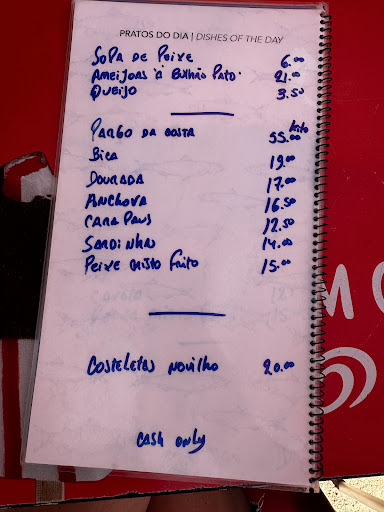 PRATOS DO DIA | DISHES OF THE DAY
SOPA DE PEIXE 6.00
AMEIJOAS À BULHÃO PATO. 21.00
QUEIJO 3.50
PARGO DA COSTA 55.00 kilo
BICA 19.00
DOURADA 17.00
ANCHOVA 16.50
CARAPAUS 12.50
SARDINHAS 14.00
PEIXE MISTO FRITO 15.00
COSTELETAS NOVILHO 20.00
CASH ONLY